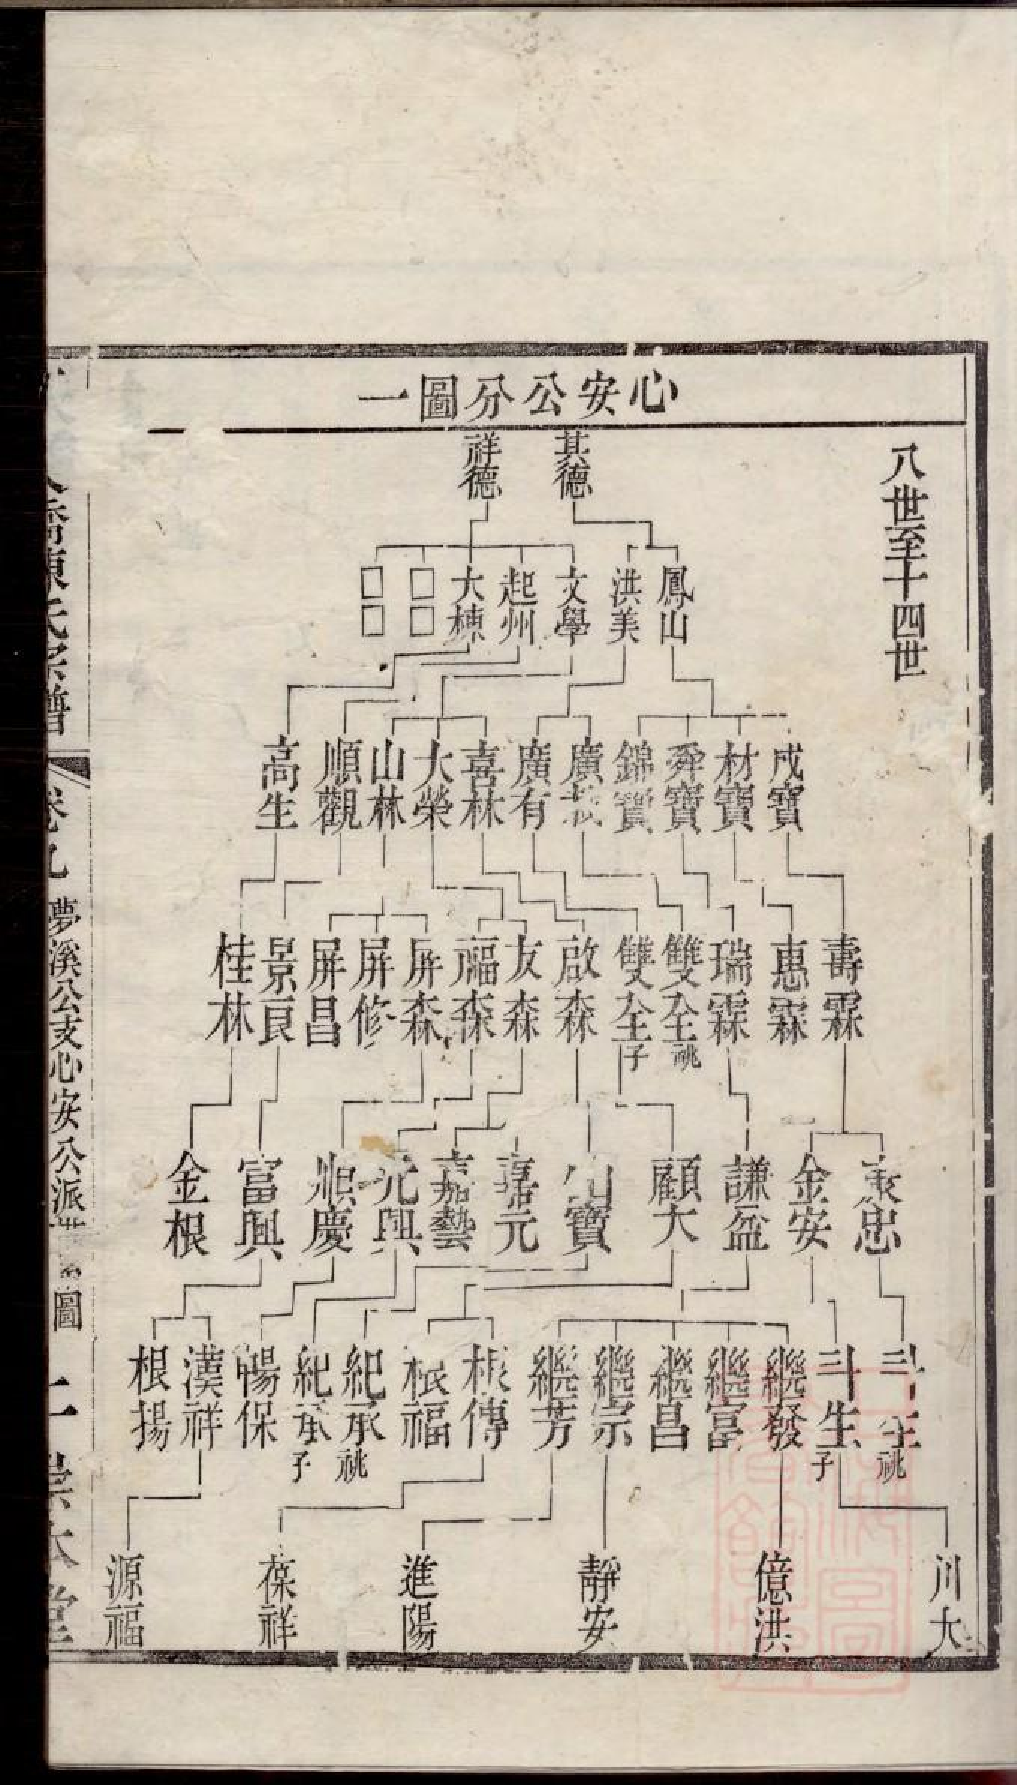 心安公分圖一
八世至十四世
其德
祥德
鳳山
洪美
文學
起州
大棟
□□
□□
戍寶
材寶
舜寶
錦寶
廣
廣有
喜林
大榮
山林
順觀
高生
壽霖
惠霖
瑞霖
雙全祧
雙全子
啟森
友森
福森
屏森
屏修
屏昌
景良
桂林
忠
金安
謙益
顧大
寶
嘉元
嘉藝
元興
順慶
富興
金根
斗生祧
斗生子
繼發
繼富
繼昌
繼宗
繼芳
根傳
根福
紀承祧
紀承子
暢保
漢祥
根揚
川大
億洪
靜安
進陽
葆祥
源福
橋陳氏宗譜
卷九
夢溪公支心安公派
圖
一
崇本堂